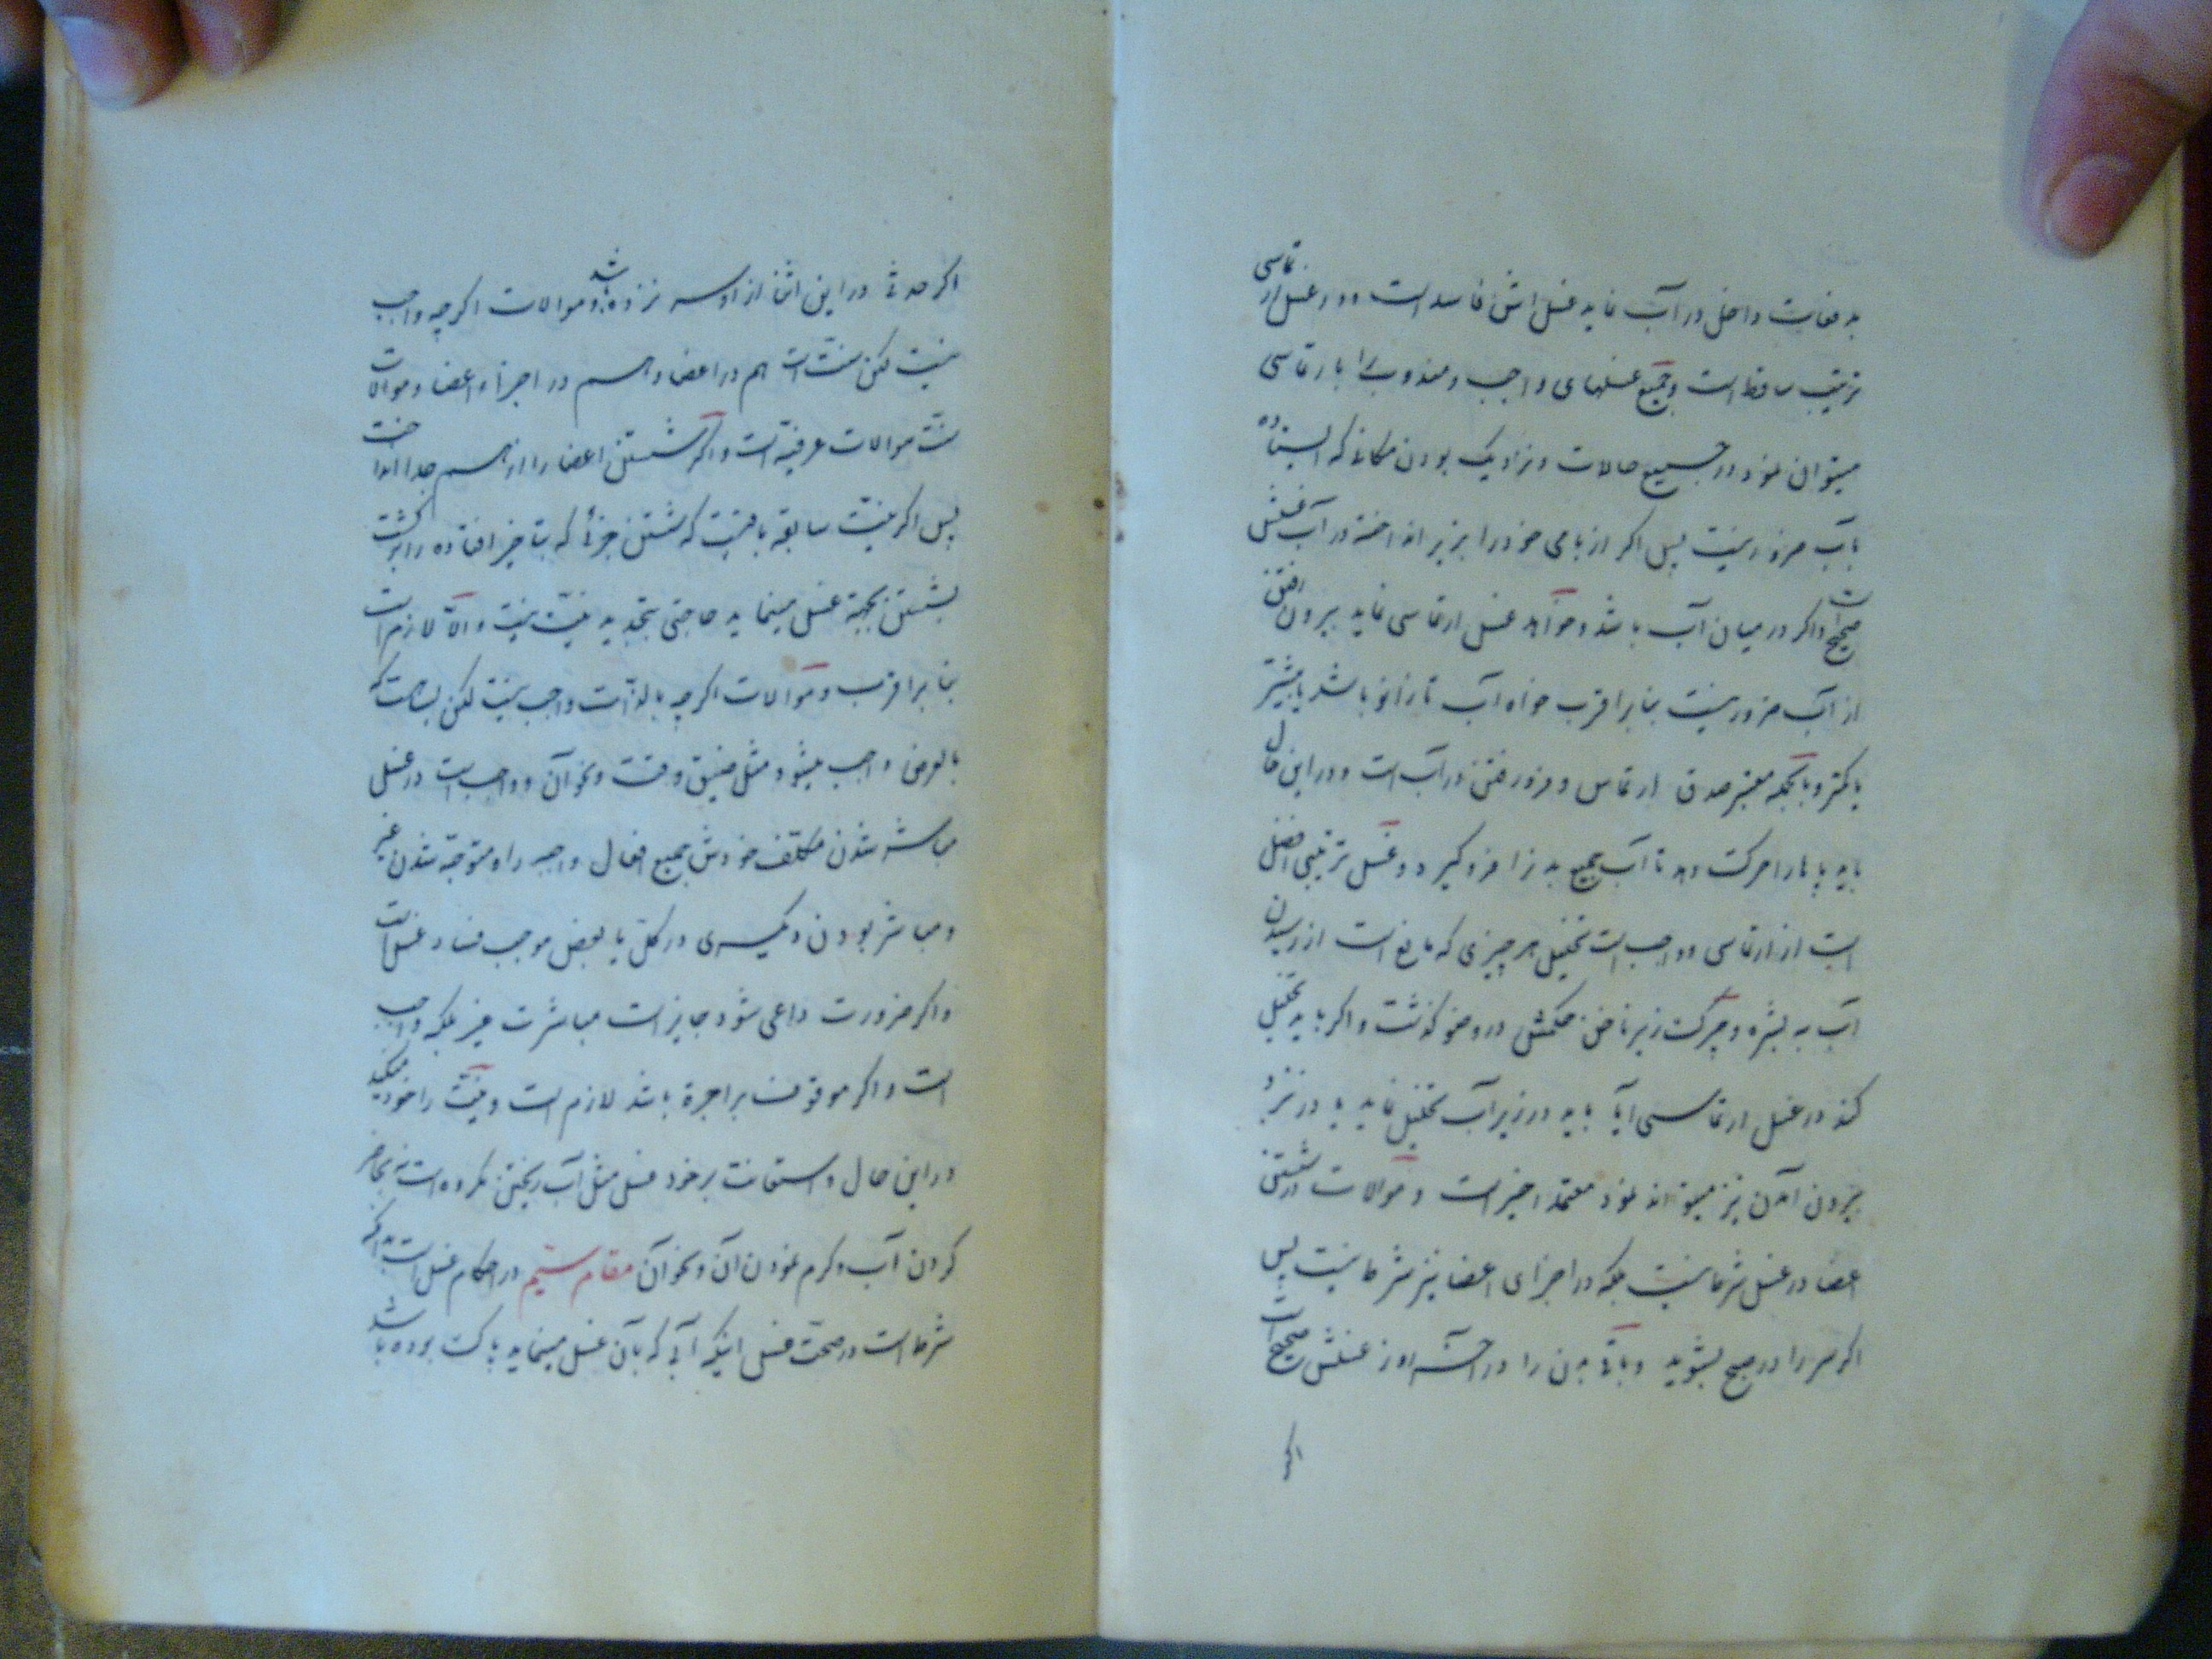 بدفعات داخل در آب نماید غسل اش فاسد است و در غسل ارتماسی
ترتیب ساقط است و جمیع غسلهای واجب و مندوب را بارتماسی
میتوان نمود در جمیع حالات و نزدیک بودن مکانی که ایستاده
بآب ضرور نیست پس اگر از بامی خود را بزیر انداخته در آب غسلش
صحیح است و اگر در میان آب باشد و خواهد غسل ارتماسی نماید بیرون رفتن
از آب ضرور نیست بنا بر اقرب خواه آب تا زانو باشد یا بیشتر
یا کمتر و بالجمله معتبر صدق ارتماس و فرو رفتن در آب است و در این حال
باید پاها را حرکت دهد تا آب جمیع بدن را فرو گیرد و غسل ترتیبی افضل
است از ارتماسی و واجب است تخلیل هر چیزی که مانع است از رسیدن
آب به بشره و چرک زیر ناخن حکمش در وضو گذشت و اگر باید تخلیل
کند در غسل ارتماسی آیا باید در زیر آب تخلیل نماید یا در نزد
بیرون آمدن نیز میتواند نمود معتمد اخیر است و موالات در شستن
اعضا در غسل شرط نیست بلکه در اجزای اعضا نیز شرط نیست پس
اگر سر را در صبح بشوید و باقی بدن را در آخر روز غسلش صحیح است
اگر
اگر حدثی در این اثنا از او سر نزده باشد و موالات اگر چه واجب
نیست لکن سنت است هم در اعضا و هم در اجزاء اعضا و موالات
سنت موالات عرفیّه است و اگر شستن اعضا را از هم جدا انداخت
پس اگر نیّت سابقه باقیست که شستن جزئی که بتاخیر افتاده را برگشت
بشستن بجهة غسل مینماید حاجتی بتجدید نیّت نیست و الّا لازم است
بنا بر اقرب و موالات اگر چه بالذّات واجب نیست لکن بسا هست که
بالعرض واجب میشود مثل ضیق وقت و نحو آن و واجب است در غسل
مباشر شدن مکلّف خودش بجمیع افعال واجبه را و متوجّه شدن غیر
و مباشر بودن دیگری در کلّ یا بعض موجب فساد غسل است
و اگر ضرورت داعی شود جایز است مباشرت غیر بلکه واجب
است و اگر موقوف بر اجرة باشد لازم است و نیّت را خود میکند
در این حال و استعانت بر خود غسل مثل آب ریختن مکروه است نه بحاضر
کردن آب و گرم نمودن آن و نحو آن مقام سیّم در احکام غسل است بدانکه
شرط است در صحّت غسل اینکه آبی که بآن غسل مینماید پاک بوده باشد